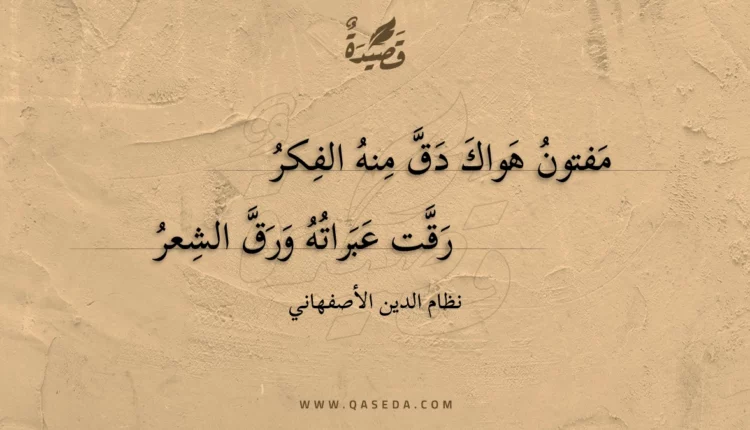 قَصِيدَةٌ
مَفتونُ هَواكَ دَقَّ مِنهُ الفِكرُ
رَقَّت عَبَراتُهُ وَرَقَّ الشِعرُ
نظام الدين الأصفهاني
WWW.QASEDA.COM